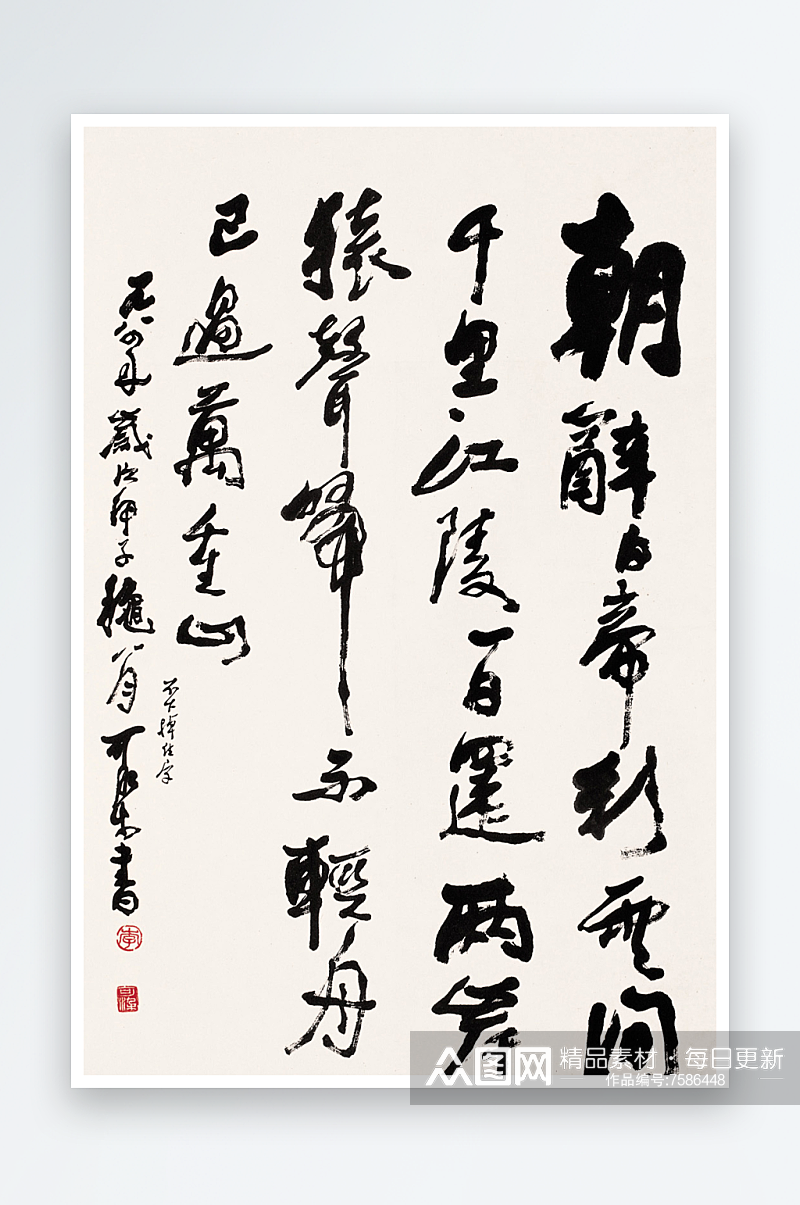 朝辭白帝彩雲間
千里江陵一日還两岸
猿聲啼不輕舟
已過萬重山
不下掉住字
一九八四年歲次甲子穐八月可染書
李
可染
众图网
精品素材·每日更新
作品编号:7586448